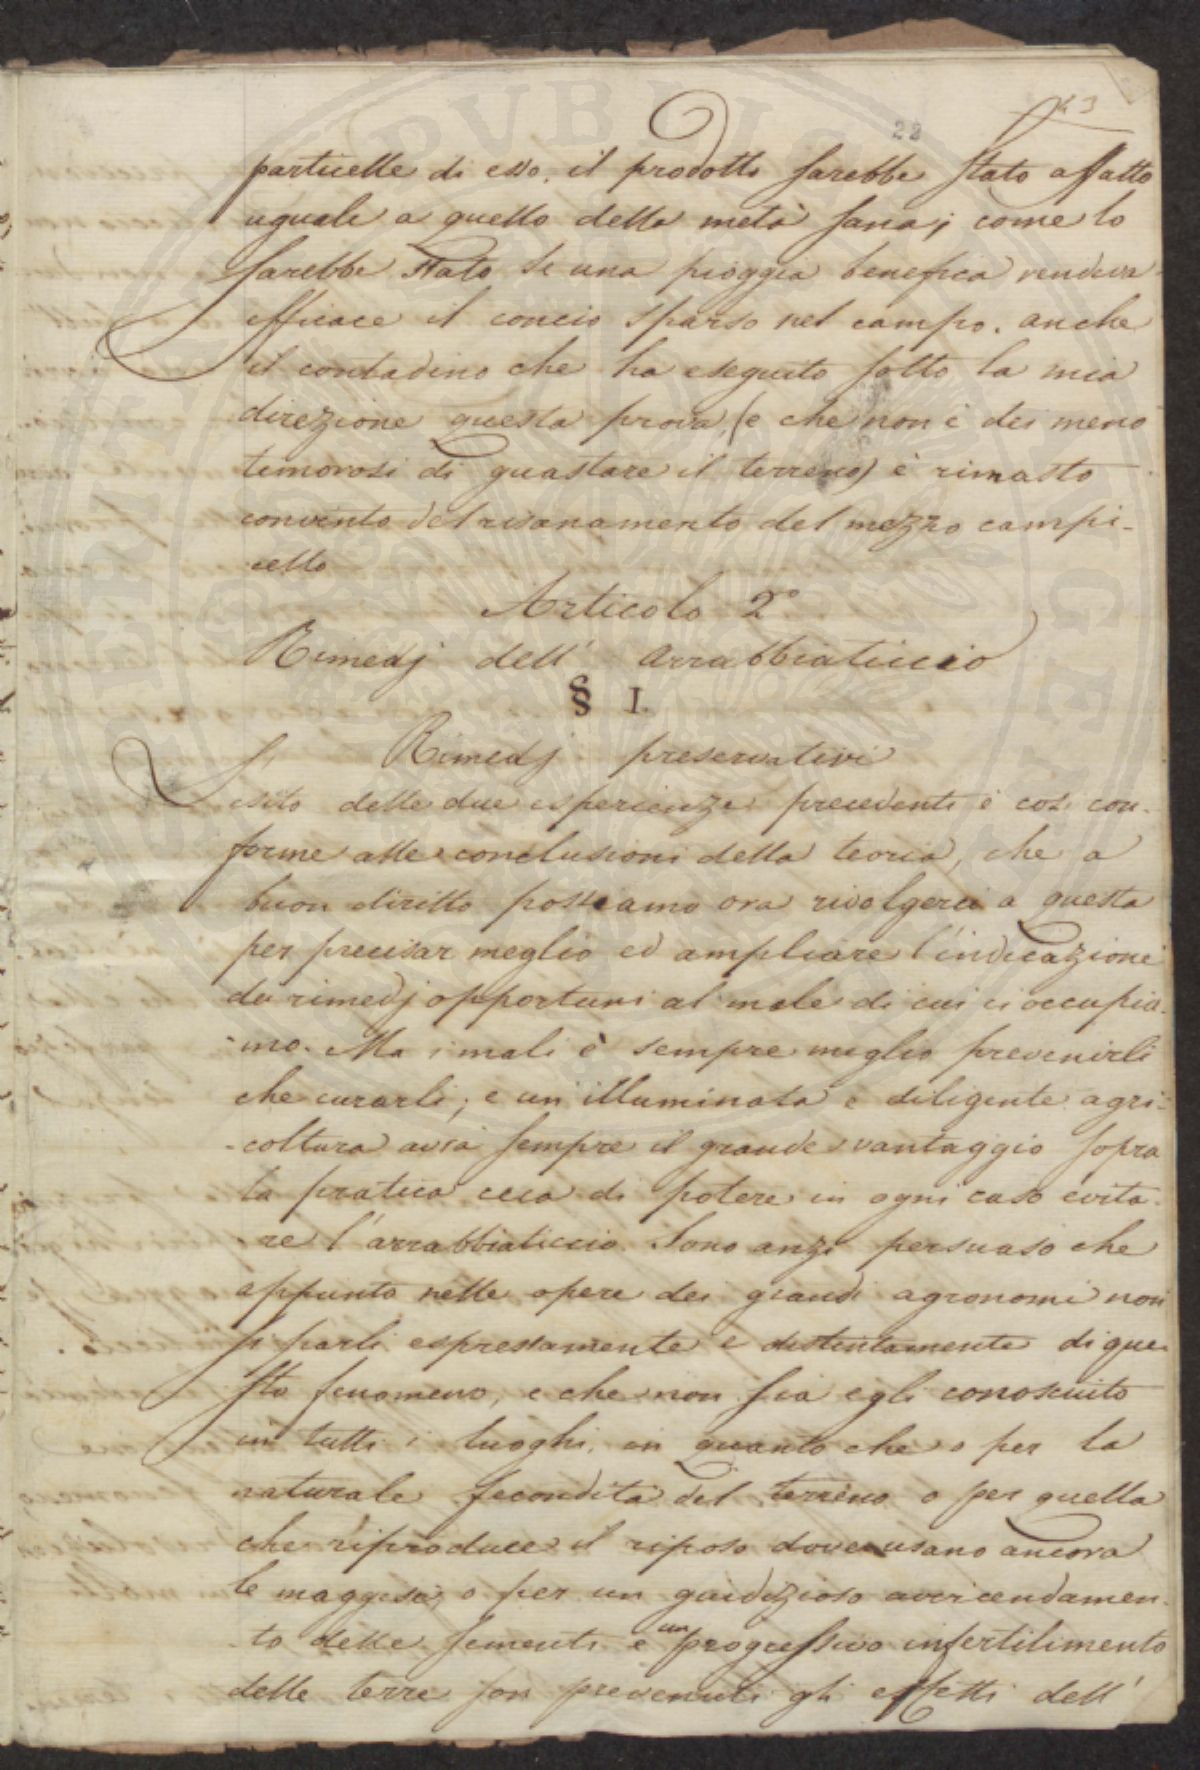 43
22
particelle di esso, il prodotto sarebbe stato affatto
uguale a quello della metà sana; come lo
sarebbe stato se una pioggia benefica rendeva
efficace il concio sparso nel campo. anche
il contadino che ha eseguito sotto la mia
direzione questa prova, (e che non è dei meno
timorosi di guastare il terreno) è rimasto
convinto del risanamento del mezzo campi-
cello
Articolo 2°
Rimedj dell' arrabbiaticcio
§ I.
Rimedj preservativi
L'
esito delle due esperienze precedenti è così con-
forme alle conclusioni della teoria, che a
buon diritto possiamo ora rivolgerci a questa
per precisar meglio ed ampliare l'indicazione
de rimedj opportuni al male di cui ci occupia-
-mo. Ma i mali è sempre meglio prevenirli
che curarli; e un'illuminata e diligente agri-
-coltura avrà sempre il grande vantaggio sopra
la pratica ceca di potere in ogni caso evita-
re l'arrabbiaticcio. Sono anzi persuaso che
appunto nelle opere dei grandi agronomi non
si parli espressamente e distintamente di que-
sto fenomeno, e che non sia egli conosciuto
in tutti i luoghi, in quanto che o per la
naturale fecondità del terreno o per quella
che riproduce il riposo dove usano ancora
le maggesi, o per un giudizioso avvicendamen-
-to delle sementi e un progressivo infertilimento
delle terre son prevenuti gli effetti dell'